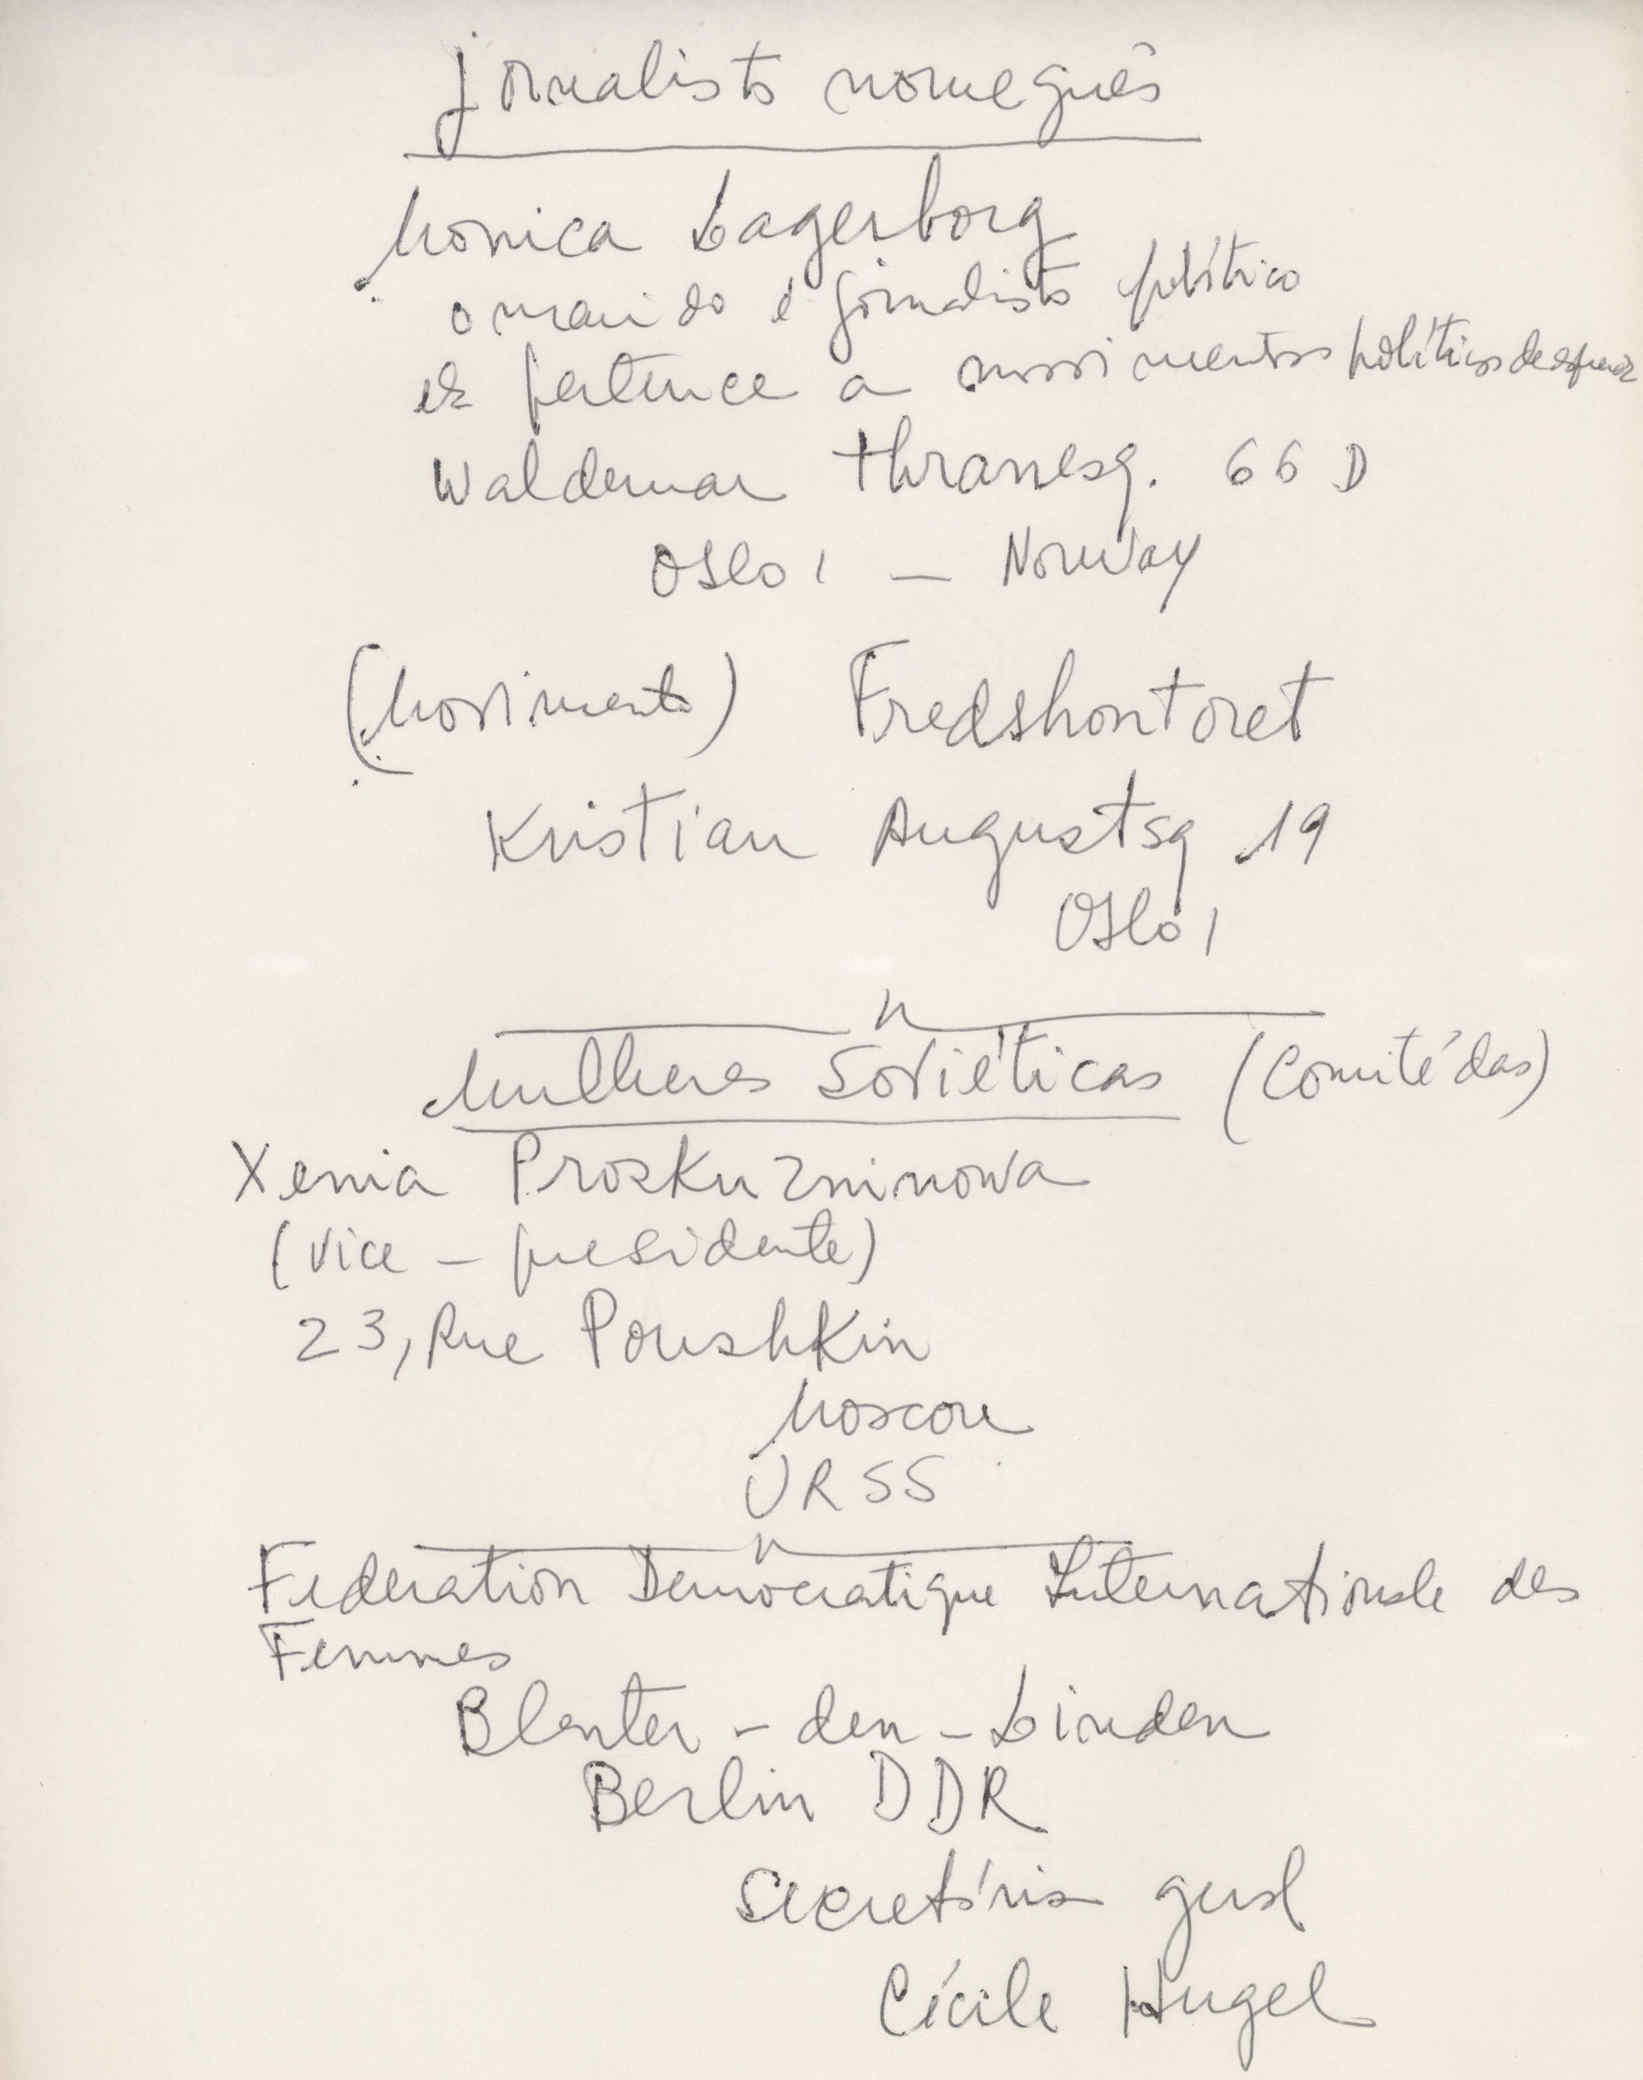 jornalista norueguês
Monica Lagerborg
o marido é jornalista político
ela pertence a movimentos políticos de esquerda
Waldemar Thranesg. 66 D
Oslo 1 — Norway
(Movimento) Fredskontoret
Kristian Augustsg 19
Oslo 1
Mulheres Soviéticas (Comité das)
Xenia Proskurninowa
(vice-presidente)
23, Rue Poushkin
Moscou
URSS
Federation Democratique Internationale des
Femmes
Blenter-den-Linden
Berlin DDR
Secretária geral
Cécile Hugel